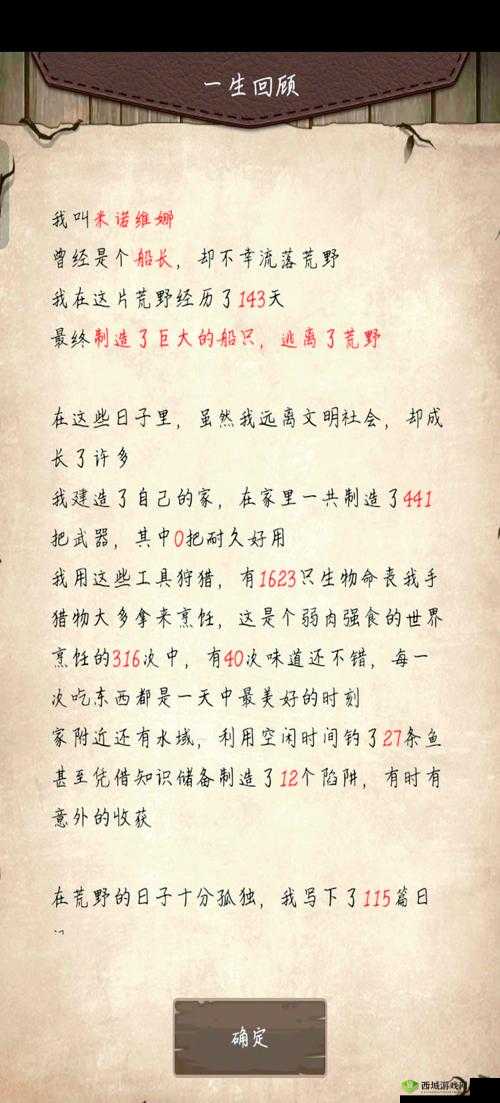 一生回顾
我叫米诺维娜
曾经是个船长，却不幸流落荒野
我在这片荒野经历了143天
最终制造了巨大的船只，逃离了荒野
在这些日子里，虽然我远离文明社会，却成
长了许多
我建造了自己的家，在家里一共制造了441
把武器，其中0把耐久好用
我用这些工具狩猎，有1623只生物命丧我手
猎物大多拿来烹饪，这是个弱肉强食的世界
烹饪的316次中，有40次味道还不错，每一
次吃东西都是一天中最美好的时刻
家附近还有水域，利用空闲时间钓了27条鱼
甚至凭借知识储备制造了12个陷阱，有时有
意外的收获
在荒野的日子十分孤独，我写下了115篇日
确定
西城游戏网